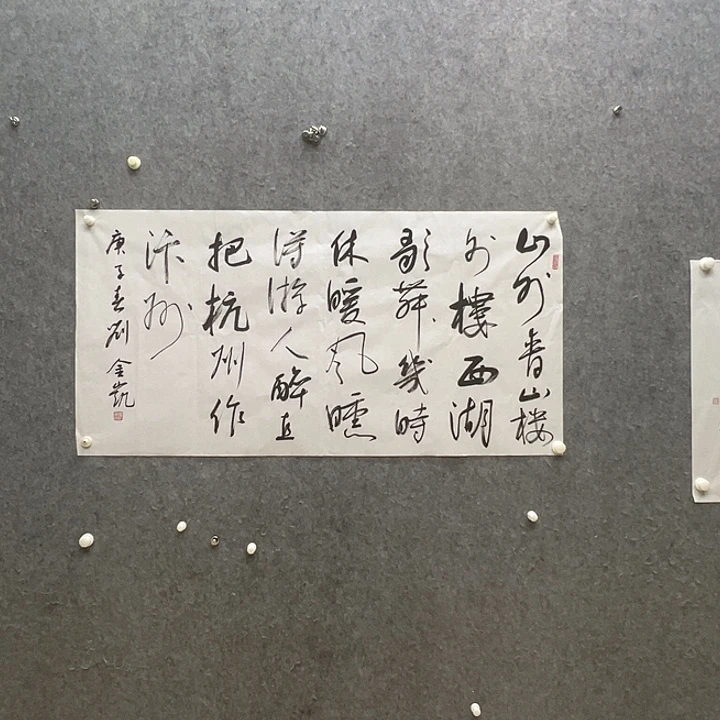 山外青山楼
外樓西湖
歌舞幾時
休暖风曛
得游人醉直
把杭州作
汴州
庚子春劉金凱